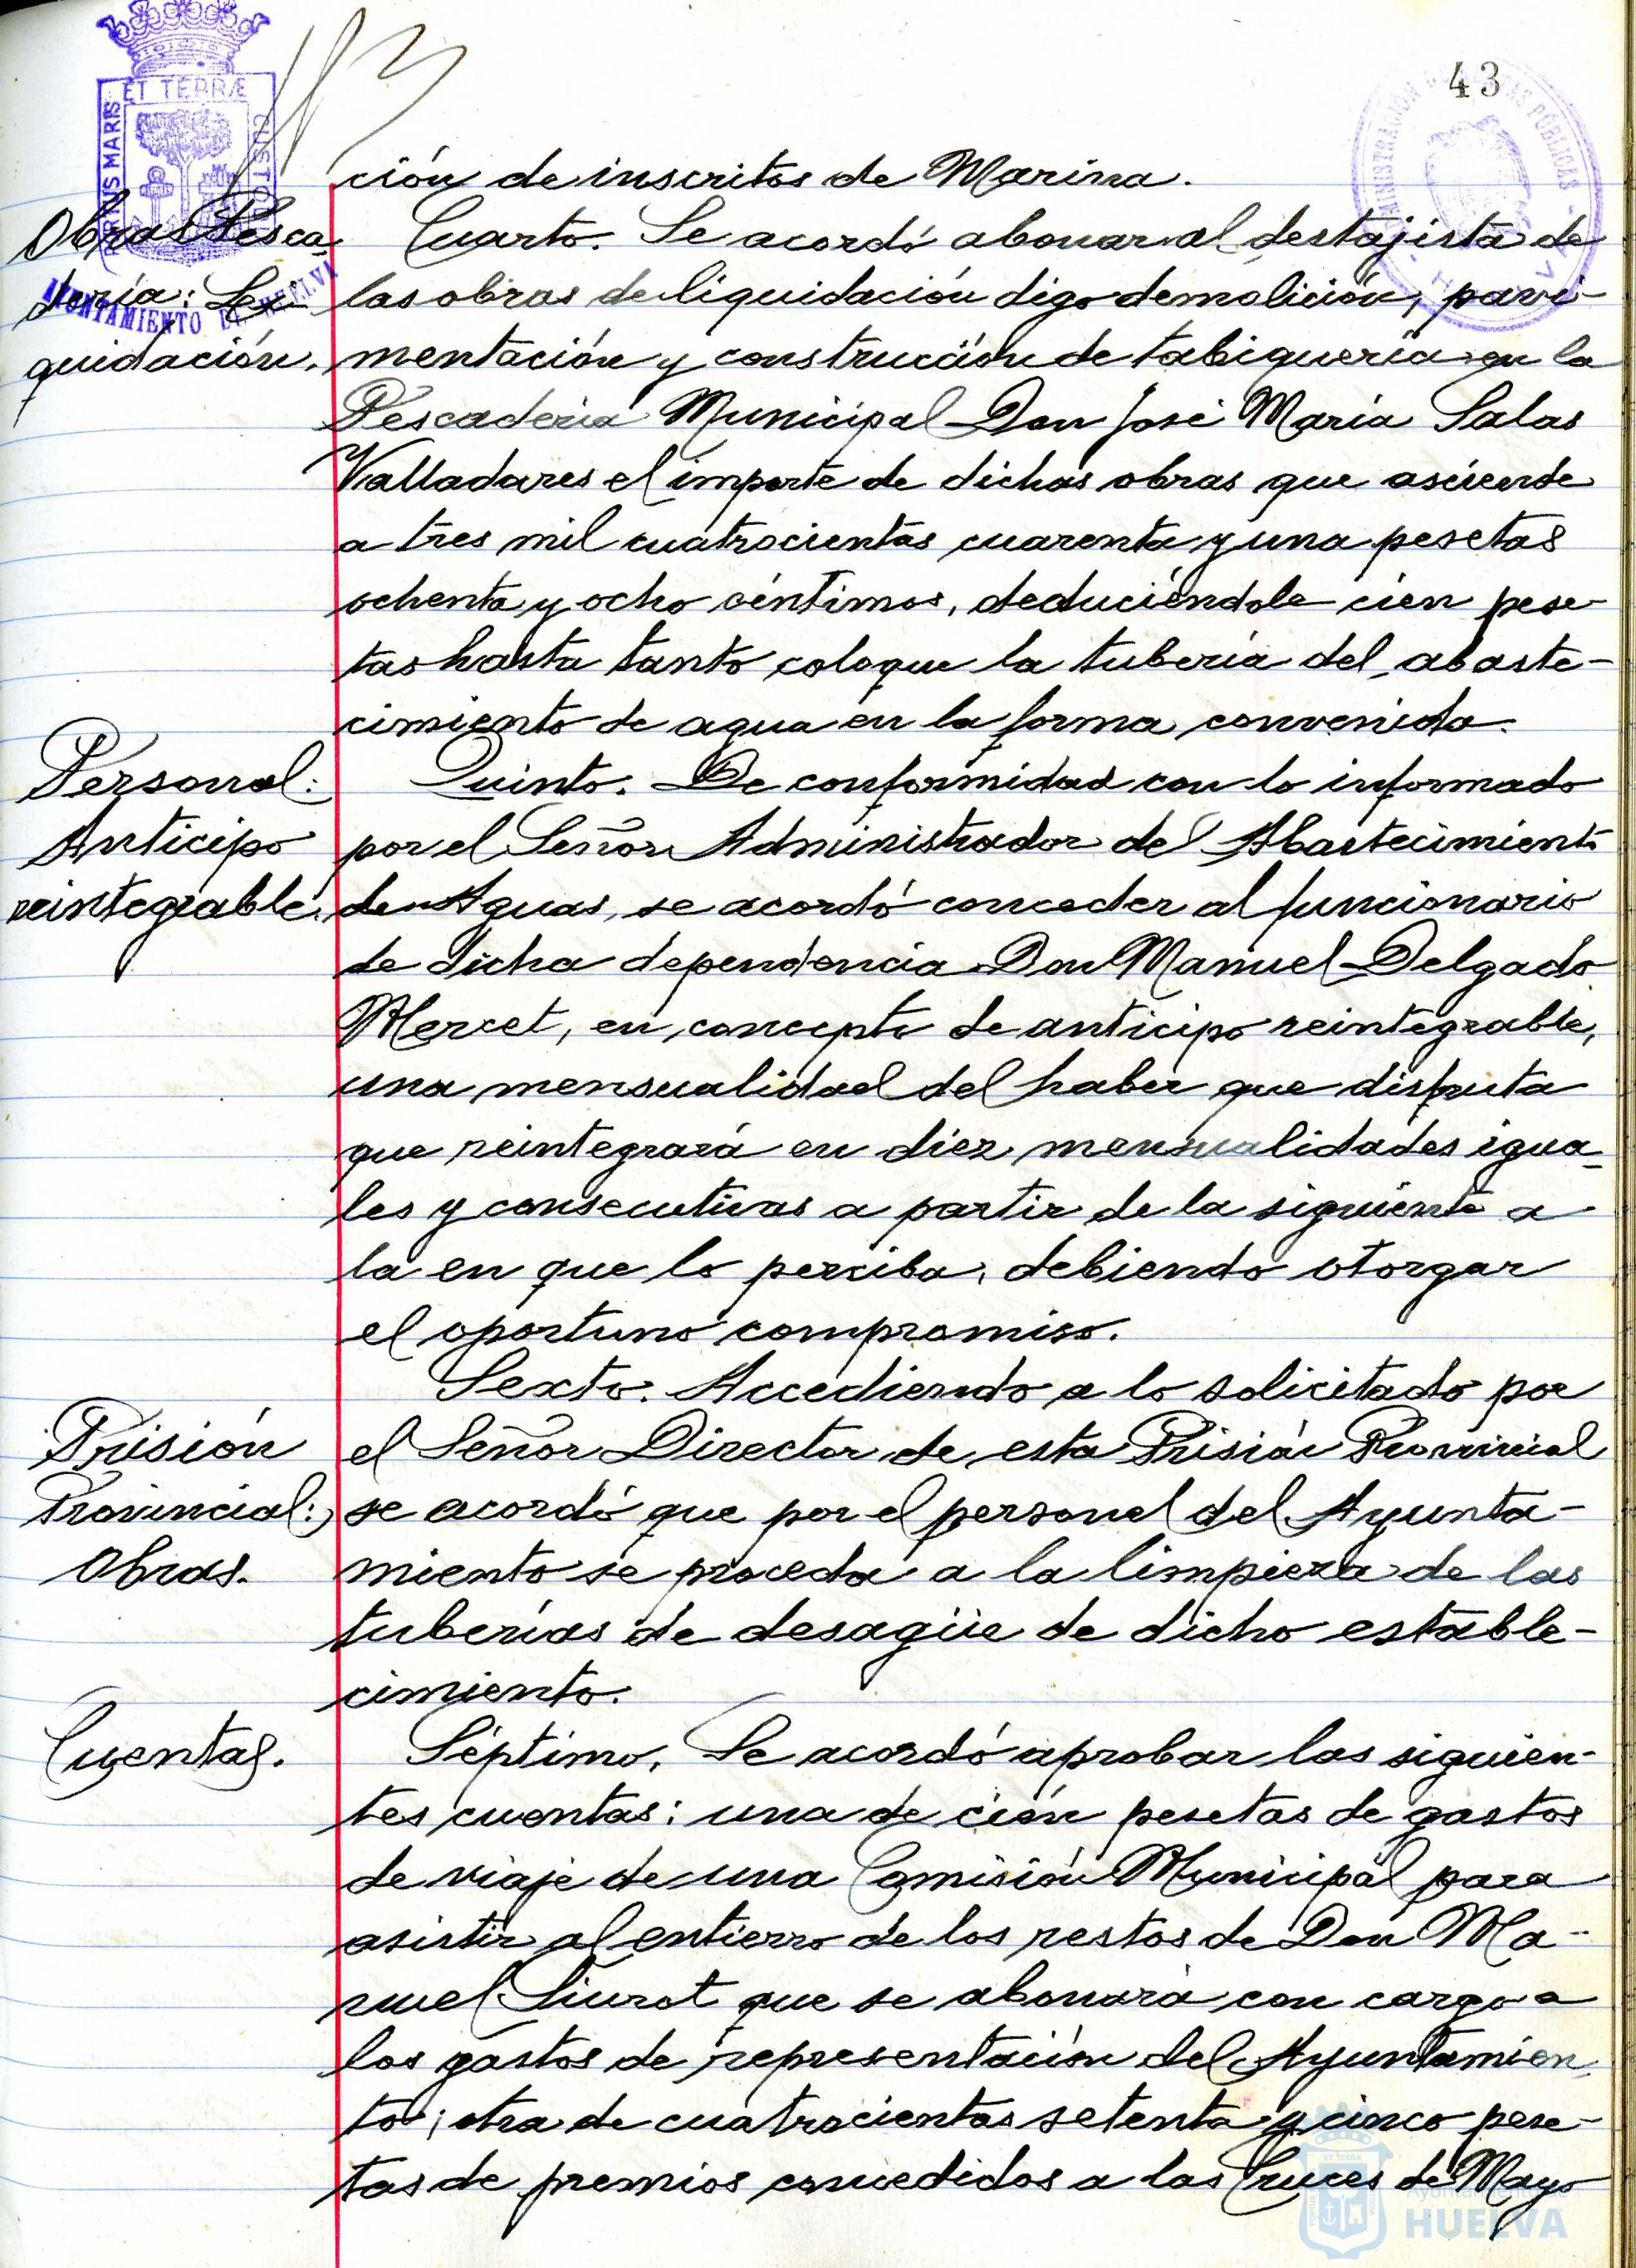 43
ción de inscritos de Marina.
Obras Pesca
dería: Li
quidación.
Cuarto. Se acordó abonar al destajista de
las obras de liquidación digo demolición, pavi-
mentación y construcción de tabiquería en la
Pescadería Municipal Don José María Salas
Valladares el importe de dichas obras que asciende
a tres mil cuatrocientas cuarenta y una pesetas
ochenta y ocho céntimos, deduciéndole cien pese-
tas hasta tanto coloque la tubería del abaste-
cimiento de agua en la forma convenida.
Personal:
Anticipo
reintegrable.
Quinto. De conformidad con lo informado
por el Señor Administrador del Abastecimiento
de Aguas, se acordó conceder al funcionario
de dicha dependencia Don Manuel Delgado
Mercet, en concepto de anticipo reintegrable,
una mensualidad del haber que disfruta
que reintegrará en diez mensualidades igua-
les y consecutivas a partir de la siguiente a
la en que lo perciba, debiendo otorgar
el oportuno compromiso.
Prisión
Provincial:
Obras.
Sexto. Accediendo a lo solicitado por
el Señor Director de esta Prisión Provincial
se acordó que por el personal del Ayunta-
miento se proceda a la limpieza de las
tuberías de desagüe de dicho estable-
cimiento.
Cuentas.
Séptimo. Se acordó aprobar las siguien-
tes cuentas: una de cien pesetas de gastos
de viaje de una Comisión Municipal para
asistir al entierro de los restos de Don Ma-
nuel Siurot que se abonará con cargo a
los gastos de representación del Ayuntamien-
to; otra de cuatrocientas setenta y cinco pese-
tas de premios concedidos a las Cruces de Mayo
PORTUS MARIS ET TERRÆ CUSTODIA
AYUNTAMIENTO DE HUELVA
HUELVA